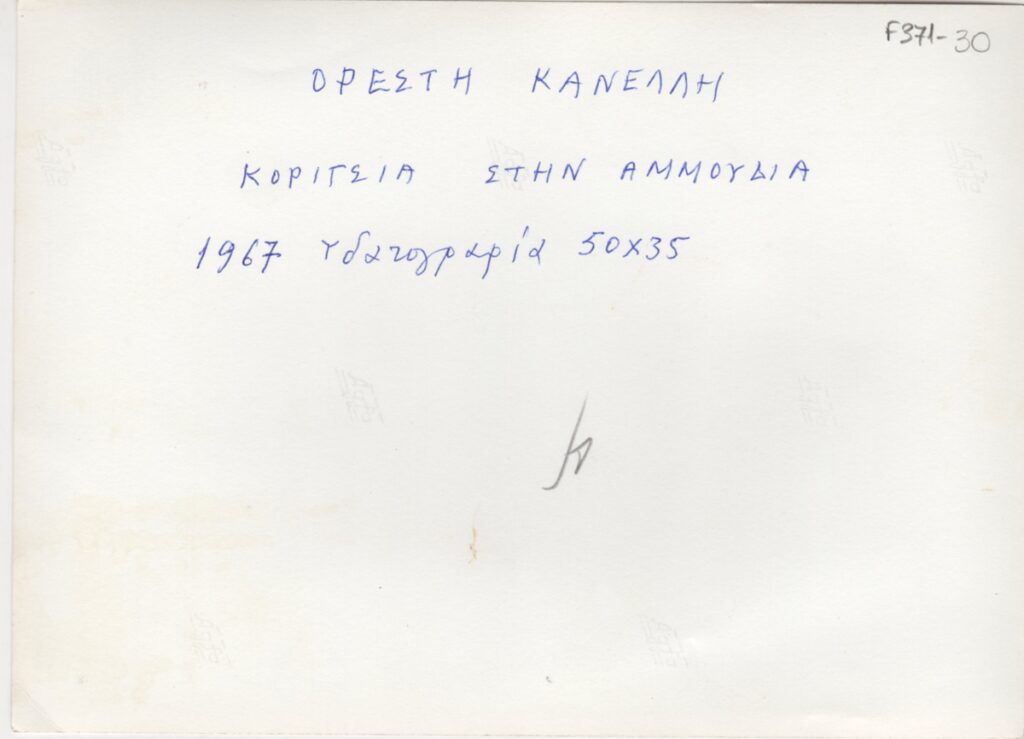 F371-30
ΟΡΕΣΤΗ ΚΑΝΕΛΛΗ
ΚΟΡΙΤΣΙΑ ΣΤΗΝ ΑΜΜΟΥΔΙΑ
1967 Υδατογραφία 50Χ35